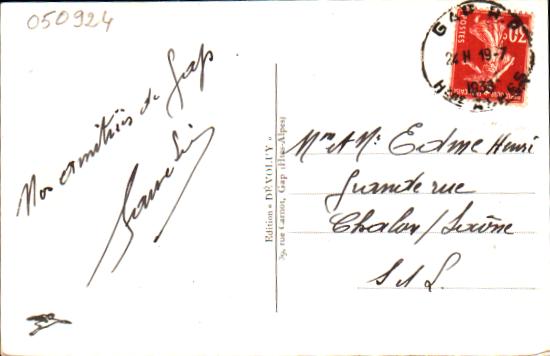 050924
Nos amitiés de Gap
Edition « DÉVOLUY »
39, rue Carnot, Gap (Htes-Alpes)
GAP R.P.
24 H 19-7
1938
HTES ALPES
POSTES
Mme et Mr Edme Henri
Grande rue
Chalon/Saône
S et L.